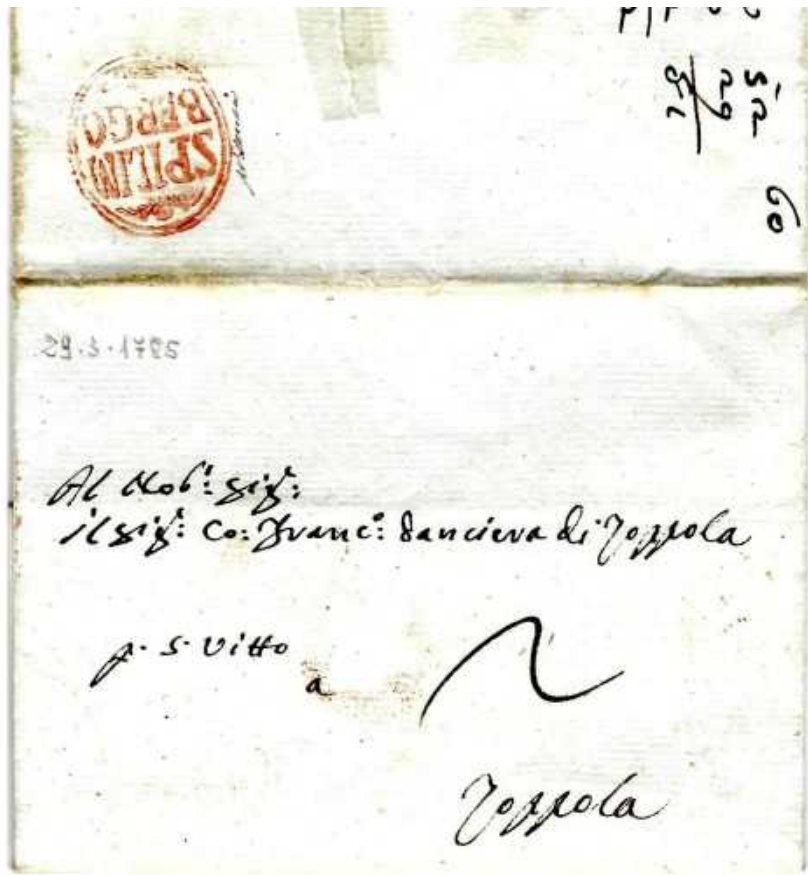 SPILIM
BERGO
29.3.1785
Al Nob: sig:
il sig: Co: Franc: Panciera di Zoppola
p. S. Vitto
a
Zoppola